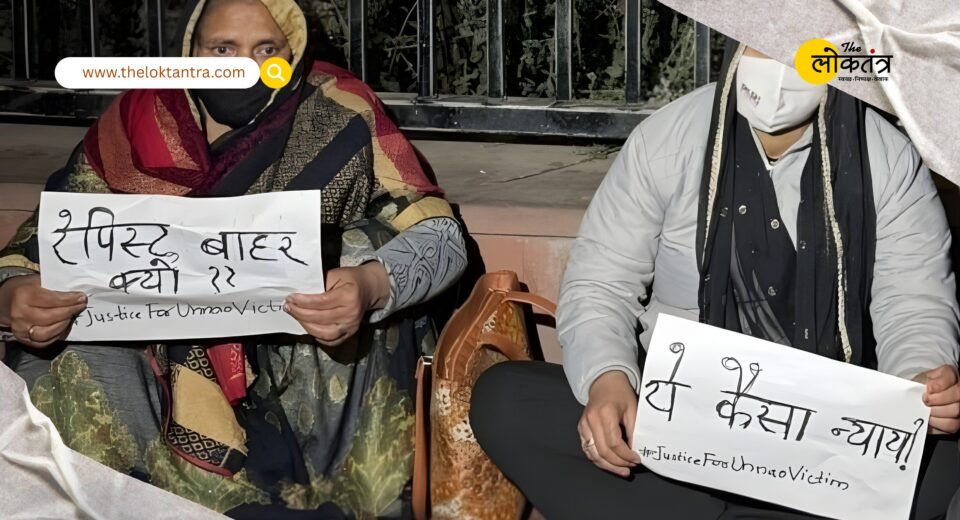 www.theloktantra.com
The
लोकतंत्र
रेपिस्ट बाहर
क्यों ??
#JusticeForUnnaoVictim
ये कैसा न्याय?
#JusticeForUnnaoVictim